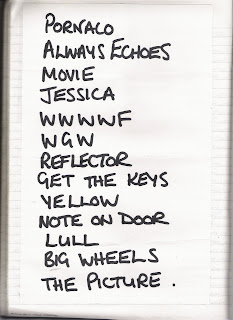 PORNACO
ALWAYS ECHOES
MOVIE
JESSICA
WWWWF
WGW
REFLECTOR
GET THE KEYS
YELLOW
NOTE ON DOOR
LULL
BIG WHEELS
THE PICTURE.